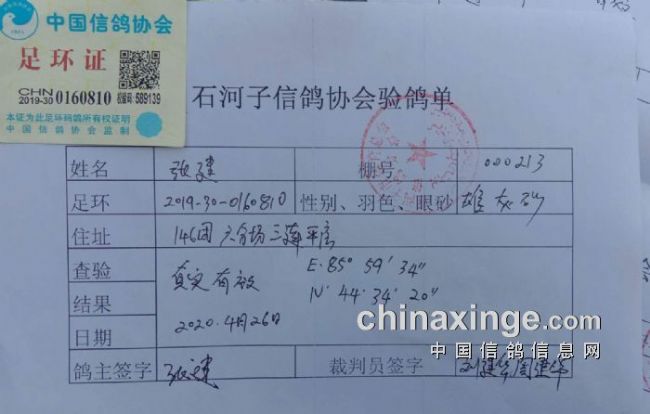 中国信鸽协会
足环证
CHN
2019-30 0160810 权息码 589139
本证为此足环码鸽所有权证明
中国信鸽协会监制
石河子信鸽协会验鸽单
姓名 张建 棚号 000213
足环 2019-30-0160810 性别、羽色、眼砂 雄 灰 砂
住址 146团六分场三连平房
查验 真实有效 E·85° 59' 34"
结果 N·44·34' 20"
日期 2020.4月26日
chinaxinge.com
中国信鸽信息网
鸽主签字 张建 裁判员签字 刘建华 周建华